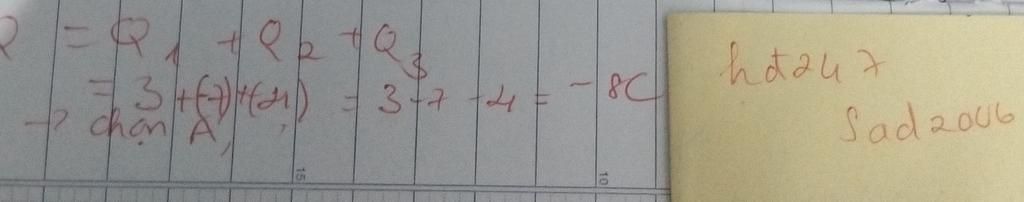 Q = Q1 + Q2 + Q3
= 3 + (-7) + (-4) = 3 - 7 - 4 = -8C
→ chọn A,
15
10
hdt247
Sad2006